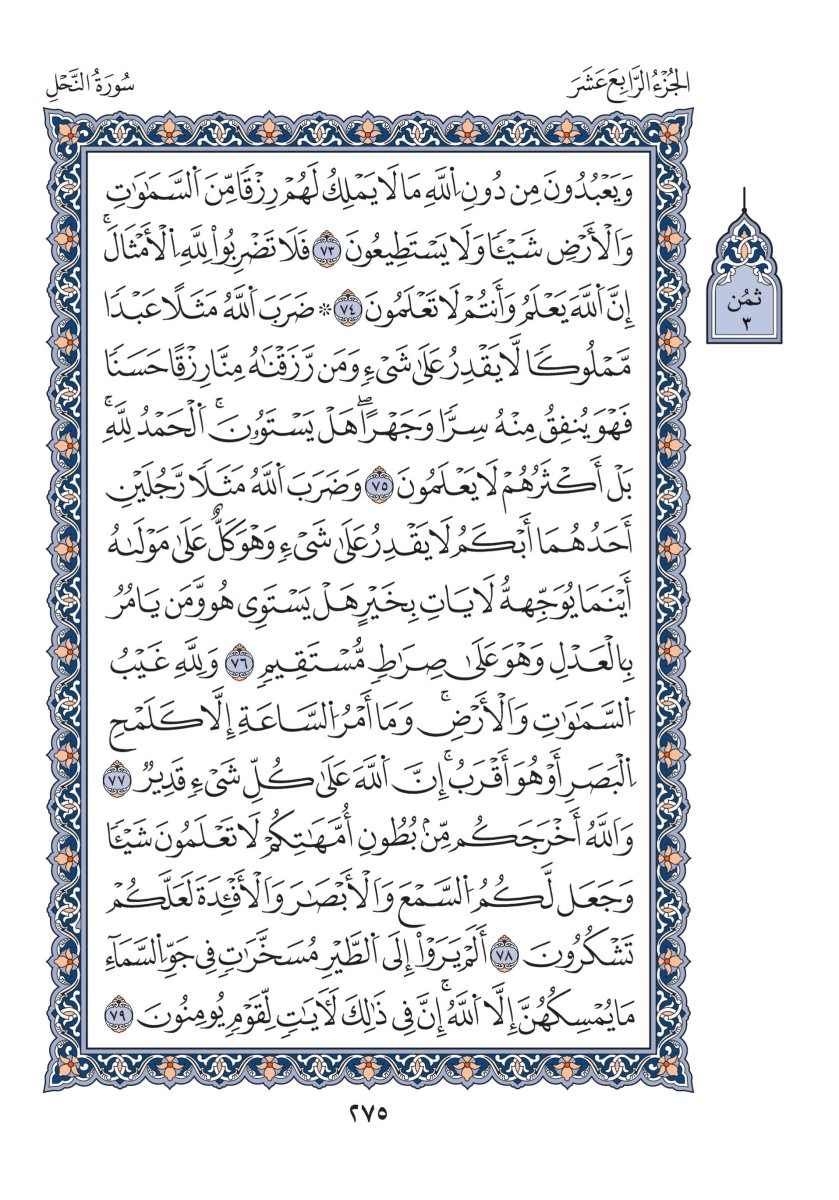 الجُزْءُ الرَّابِعَ عَشَرَ
سُورَةُ النَّحْلِ
وَيَعْبُدُونَ مِن دُونِ اِ۬للَّهِ مَا لَا يَمْلِكُ لَهُمْ رِزْقٗا مِّنَ اَ۬لسَّمَٰوَٰتِ
وَالْأَرْضِ شَيْـٔٗا وَلَا يَسْتَطِيعُونَ ٧٣ فَلَا تَضْرِبُواْ لِلَّهِ اِ۬لْأَمْثَالَۚ
إِنَّ اَ۬للَّهَ يَعْلَمُ وَأَنتُمْ لَا تَعْلَمُونَ ٧٤ ۞ ضَرَبَ اَ۬للَّهُ مَثَلًا عَبْدٗا
مَّمْلُوكٗا لَّا يَقْدِرُ عَلَىٰ شَيْءٖ وَمَن رَّزَقْنَٰهُ مِنَّا رِزْقًا حَسَنٗا
فَهْوَ يُنفِقُ مِنْهُ سِرّٗا وَجَهْرًاۖ هَلْ يَسْتَوُۥنَۚ اَ۬لْحَمْدُ لِلَّهِۚ
بَلْ أَكْثَرُهُمْ لَا يَعْلَمُونَ ٧٥ وَضَرَبَ اَ۬للَّهُ مَثَلٗا رَّجُلَيْنِ
أَحَدُهُمَا أَبْكَمُ لَا يَقْدِرُ عَلَىٰ شَيْءٖ وَهْوَ كَلٌّ عَلَىٰ مَوْلَىٰهُ
أَيْنَمَا يُوَجِّههُّ لَا يَاتِ بِخَيْرٍ هَلْ يَسْتَوِي هُو وَّمَن يَامُرُ
بِالْعَدْلِ وَهْوَ عَلَىٰ صِرَٰطٖ مُّسْتَقِيمٖ ٧٦ وَلِلَّهِ غَيْبُ
اُ۬لسَّمَٰوَٰتِ وَالْأَرْضِۚ وَمَا أَمْرُ اُ۬لسَّاعَةِ إِلَّا كَلَمْحِ
اِ۬لْبَصَرِ أَوْ هُوَ أَقْرَبُۚ إِنَّ اَ۬للَّهَ عَلَىٰ كُلِّ شَيْءٖ قَدِيرٞ ٧٧
وَاللَّهُ أَخْرَجَكُم مِّنۢ بُطُونِ أُمَّهَٰتِكُمْ لَا تَعْلَمُونَ شَيْـٔٗا
وَجَعَل لَّكُمُ اُ۬لسَّمْعَ وَالْأَبْصَٰرَ وَالْأَفْـِٔدَةَ لَعَلَّكُمْ
تَشْكُرُونَ ٧٨ أَلَمْ يَرَوْاْ إِلَى اَ۬لطَّيْرِ مُسَخَّرَٰتٖ فِي جَوِّ اِ۬لسَّمَآءِ
مَا يُمْسِكُهُنَّ إِلَّا اَ۬للَّهُۚ إِنَّ فِي ذَٰلِكَ لَأٓيَٰتٖ لِّقَوْمٖ يُومِنُونَ ٧٩
ثُمُن
٣
٢٧٥